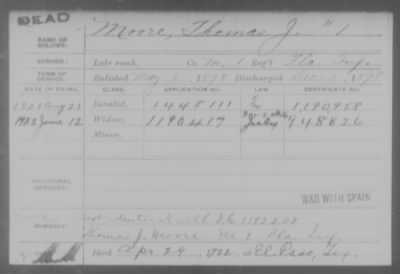 DEAD
NAME OF SOLDIER: Moore, Thomas J. "1
SERVICE: Late rank, Co. M. 1 Reg't Fla. Inf.
TERM OF SERVICE: Enlisted May 1898 Discharged Dec. 1898
DATE OF FILING. CLASS. APPLICATION NO. LAW. CERTIFICATE NO.
1921 Aug 21 Invalid, 1448111 1,190,958
1922 June 12 Widow, 1190417 July 948826
Minor,
ADDITIONAL SERVICES:
WAR WITH SPAIN
REMARKS: not identical with 1192208
Thomas J. Moore M 1 Fla. Inf.
Died Apr 29, 1922, at El Paso, Tex.